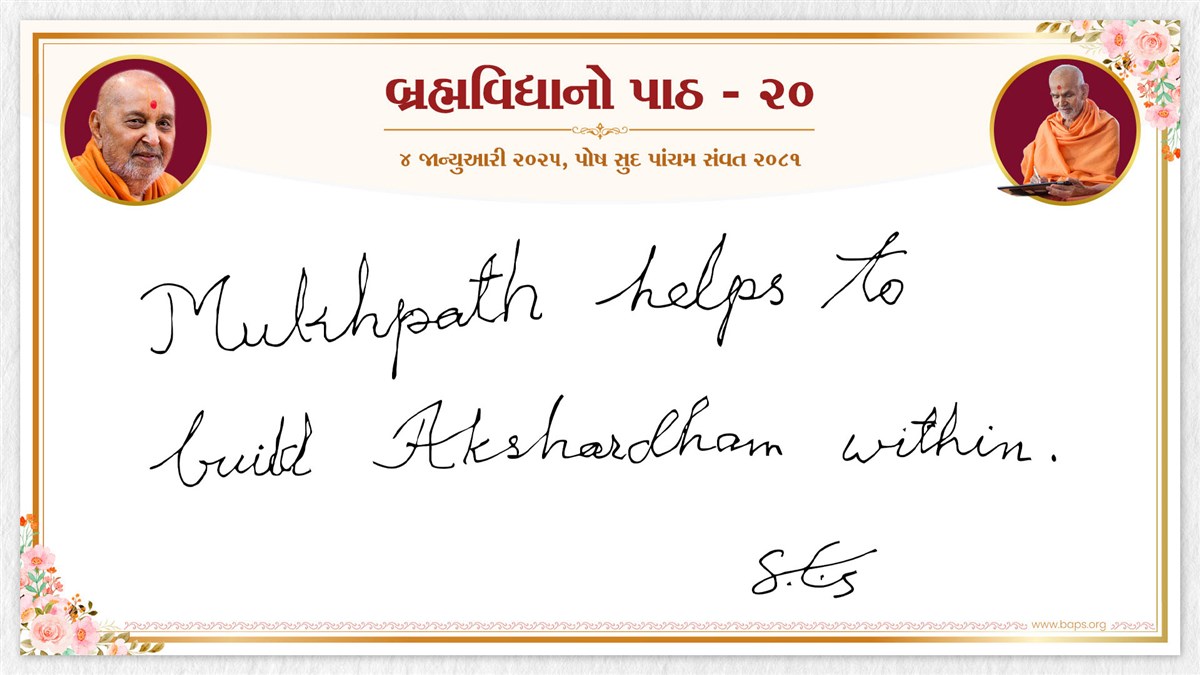 બ્રહ્મવિદ્યાનો પાઠ - ૨૦
૪ જાન્યુઆરી ૨૦૨૫, પોષ સુદ પાંચમ સંવત ૨૦૮૧
Mukhpath helps to
build Akshardham within.
www.baps.org